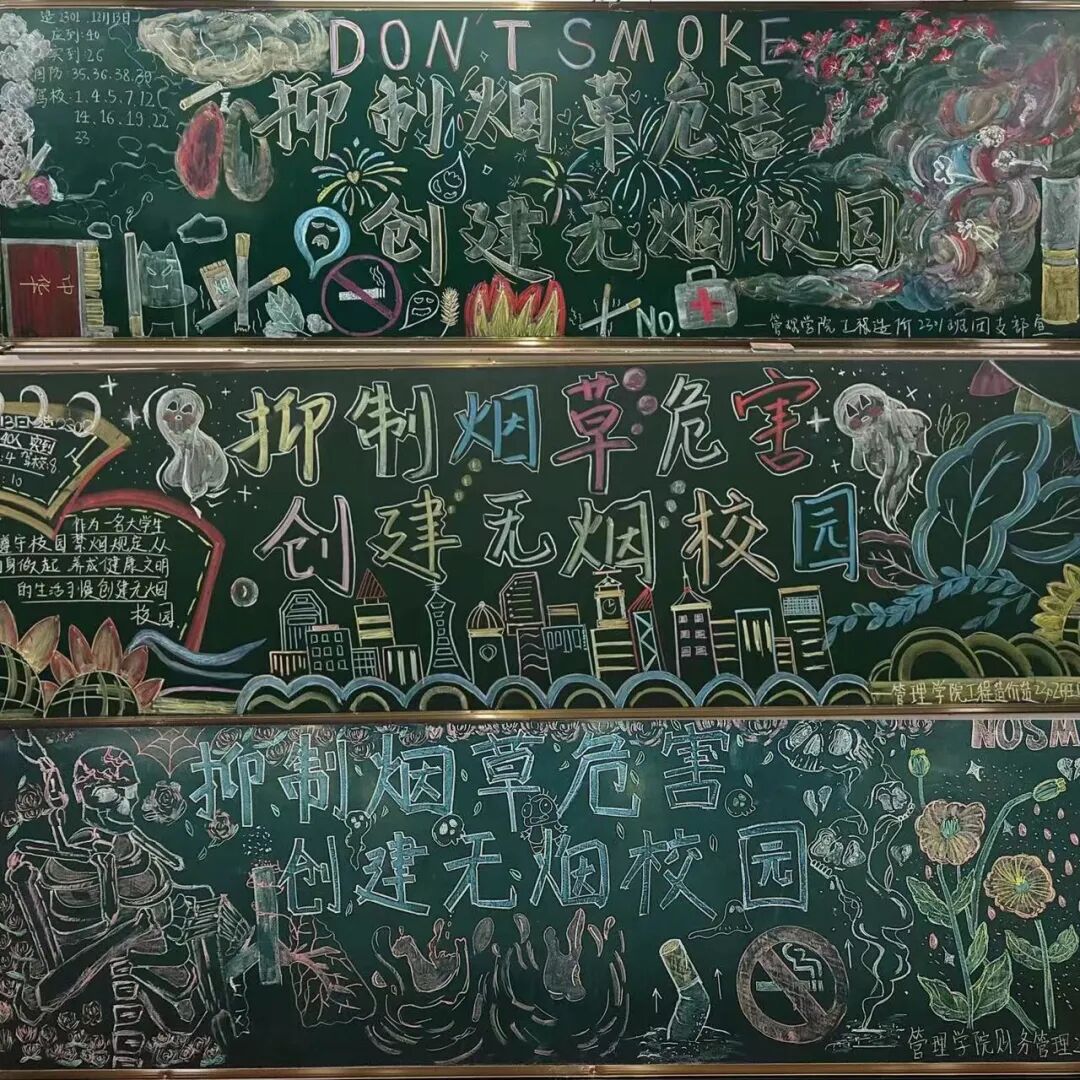 造2301 12月13日
应到:40
实到:26
国防:35.36.38.39
驾校:1.4.5.7.12
14.16.19.22
33
DON'T SMOKE
抑制烟草危害
创建无烟校园
中华
NO.
管理学院工程造价2301班团支部宣
抑制烟草危害
创建无烟校园
作为一名大学生
遵守校园禁烟规定从
自身做起 养成健康文明
的生活习惯创建无烟
校园
管理学院工程造价
NOSM
抑制烟草危害
创建无烟校园
管理学院财务管理